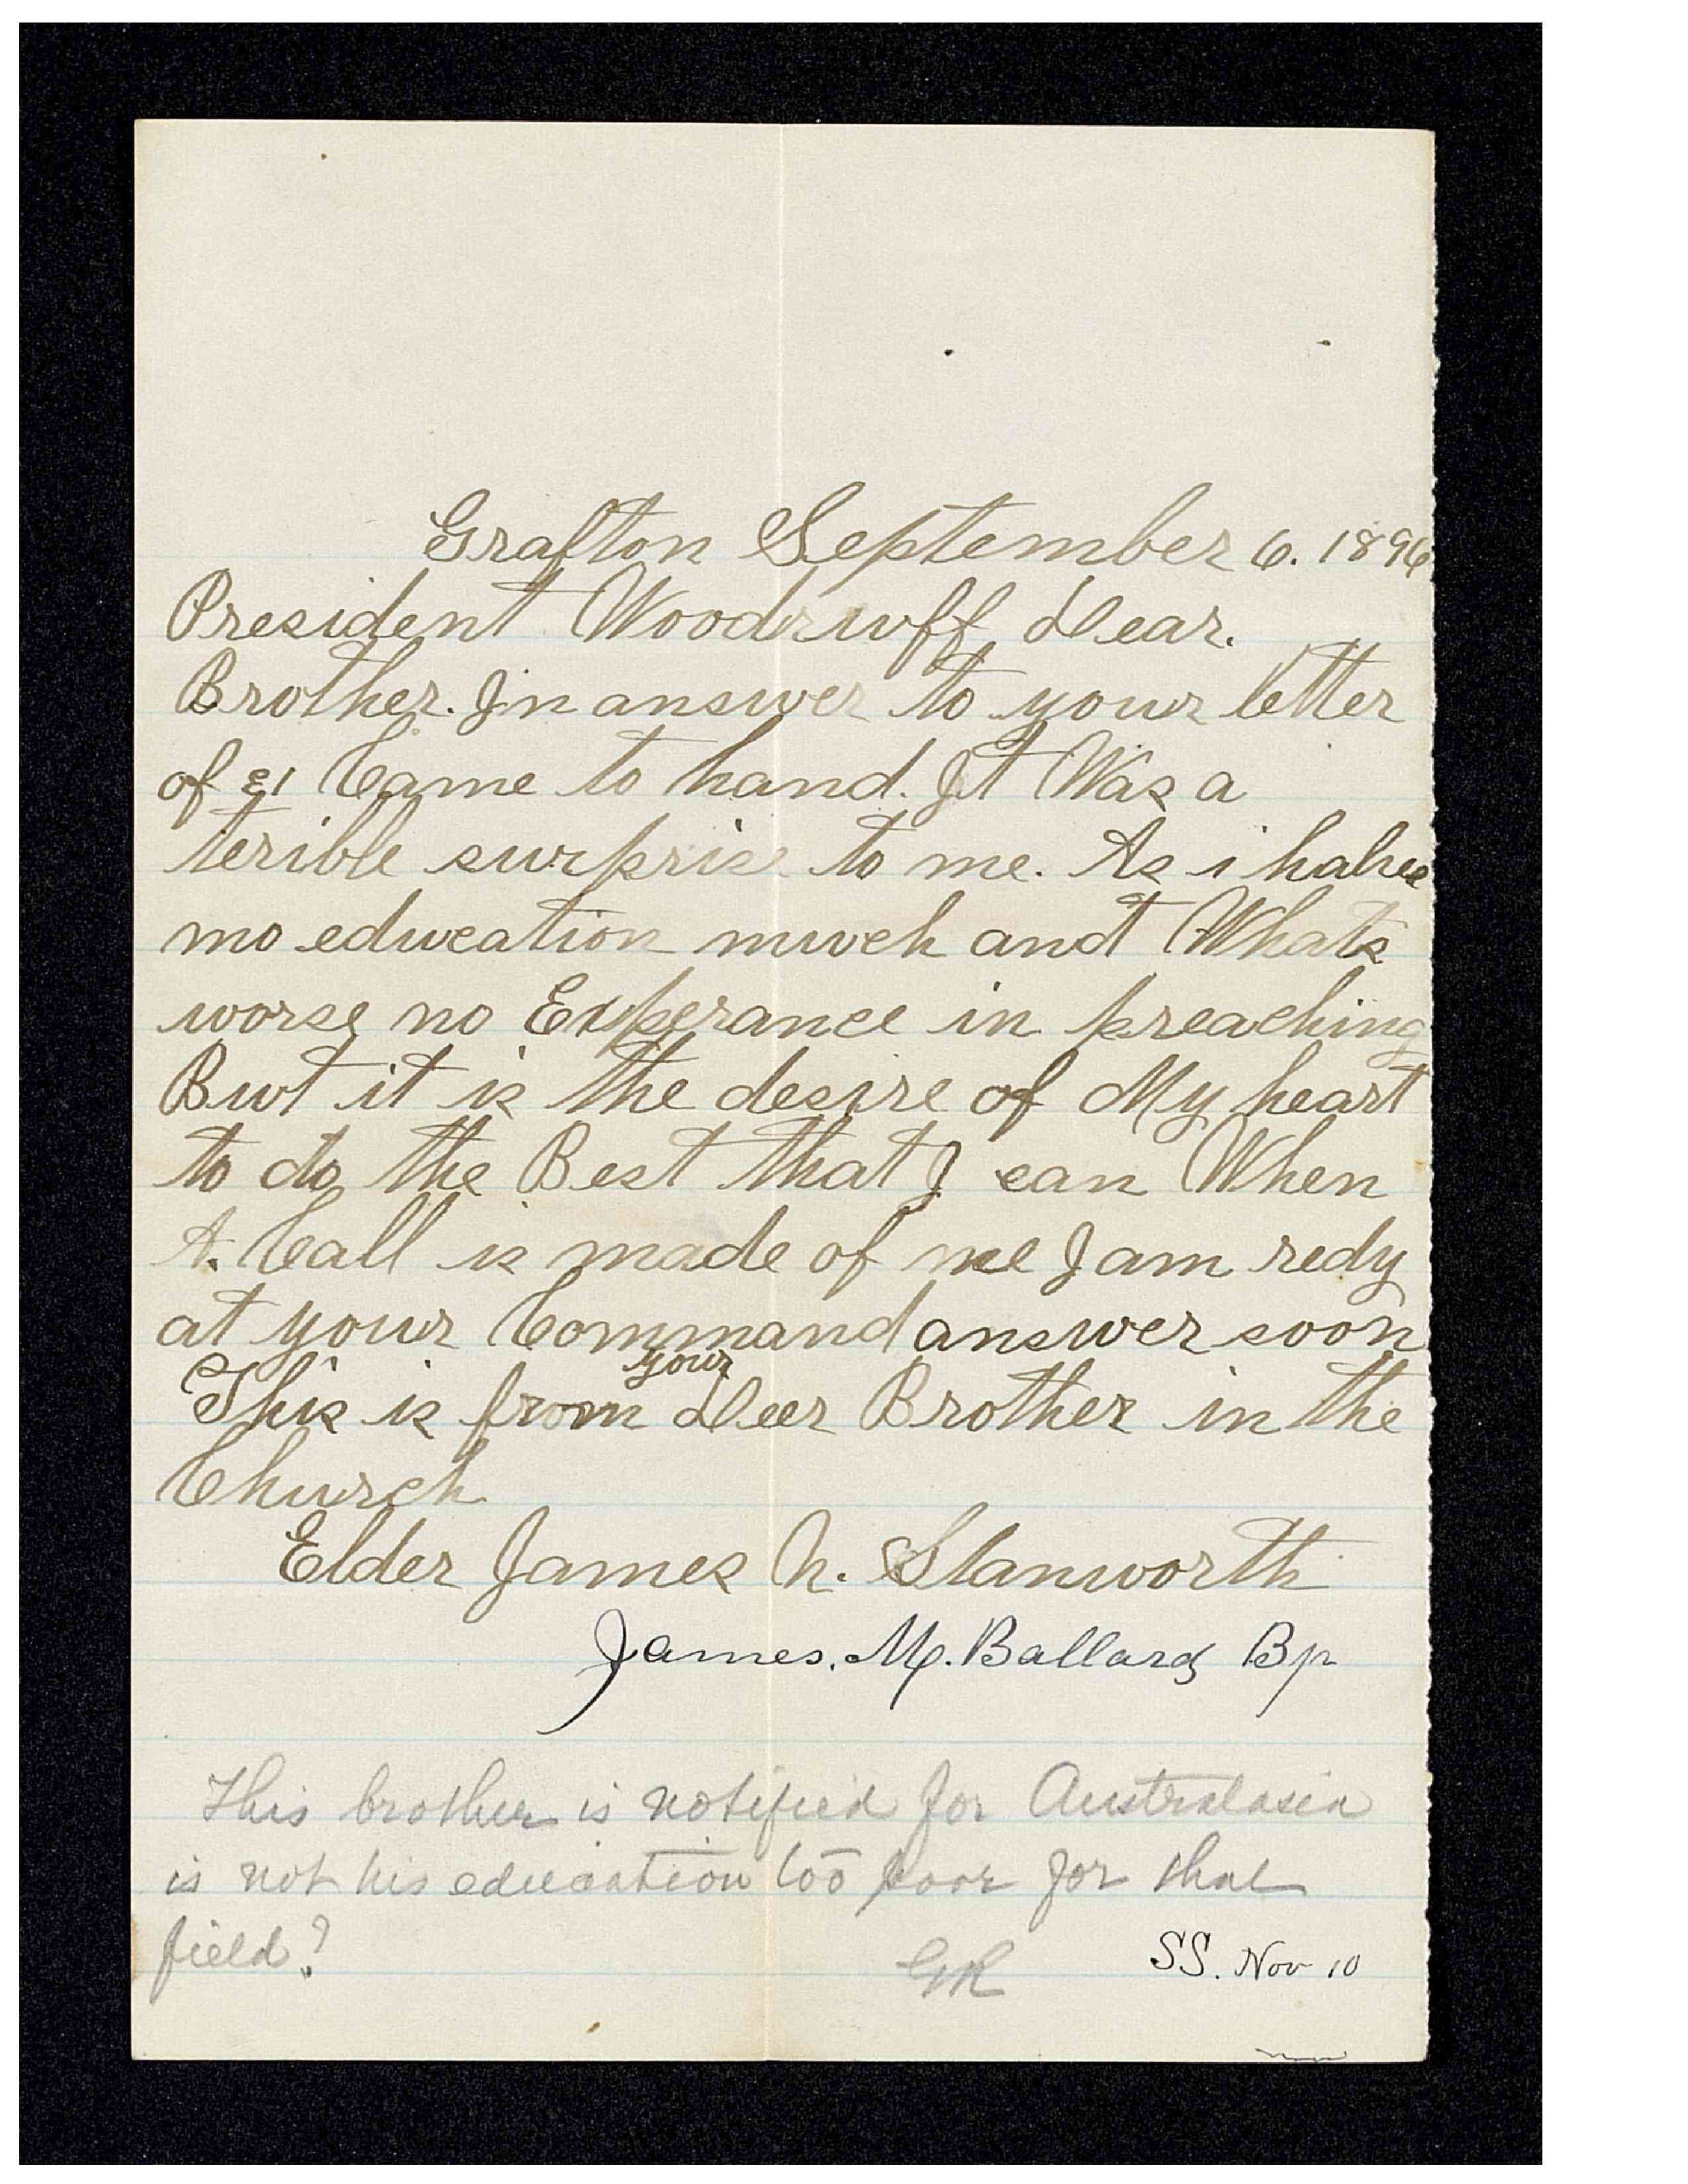 Grafton September 6. 1896
President Woodruff Dear.
Brother. In answer to your letter
of 21 Came to hand. It Was a
terible surprise to me. As i halve
mo education much and Whats
worse no Experance in preaching
But it is the desire of My heart
to do the Best that I can When
A. Call is made of me I am redy
at your Command answer soon
your
This is from Deer Brother in the
Church
Elder James N. Stanworth
James. M. Ballard Bp
This brother is notified for Australasia
is not his education too poor for that
field?
GR
SS. Nov 10